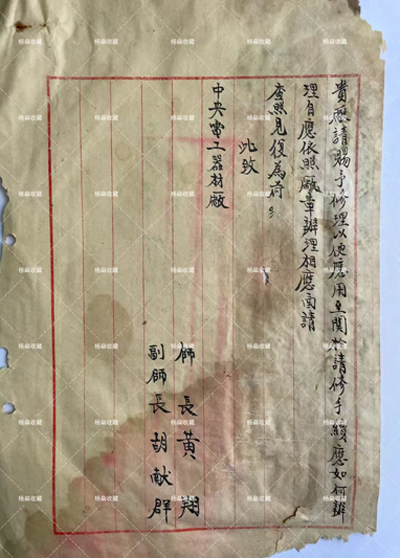 貴廠請賜予修理以便應用至關於請修手續應如何辦
理自應依照廠章辦理相應函請
查照見復為荷
此致
中央電工器材廠
師長黃翔
副師長胡献群